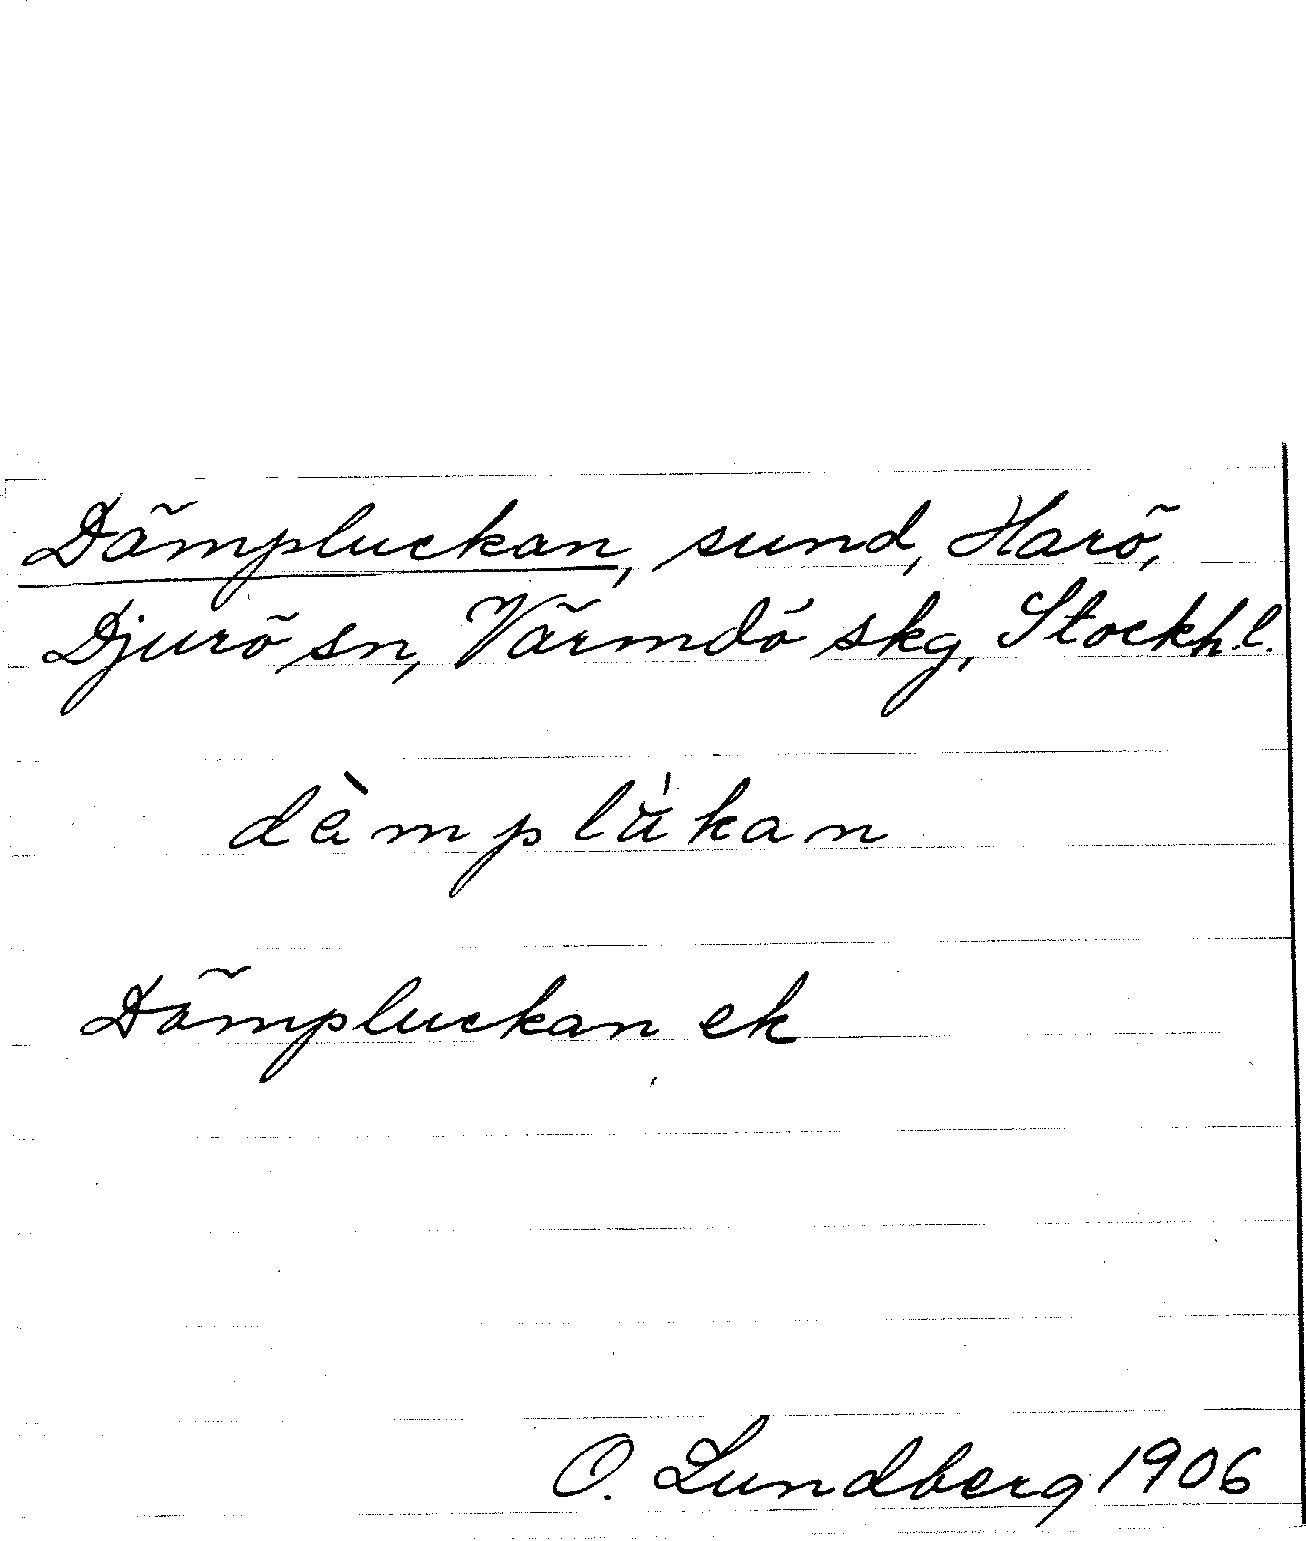 Dämpluckan, sund, Harö,
Djurö sn, Värmdö skg, Stockh.l.
dèmplu̍kan
Dämpluckan ek
O. Lundberg 1906